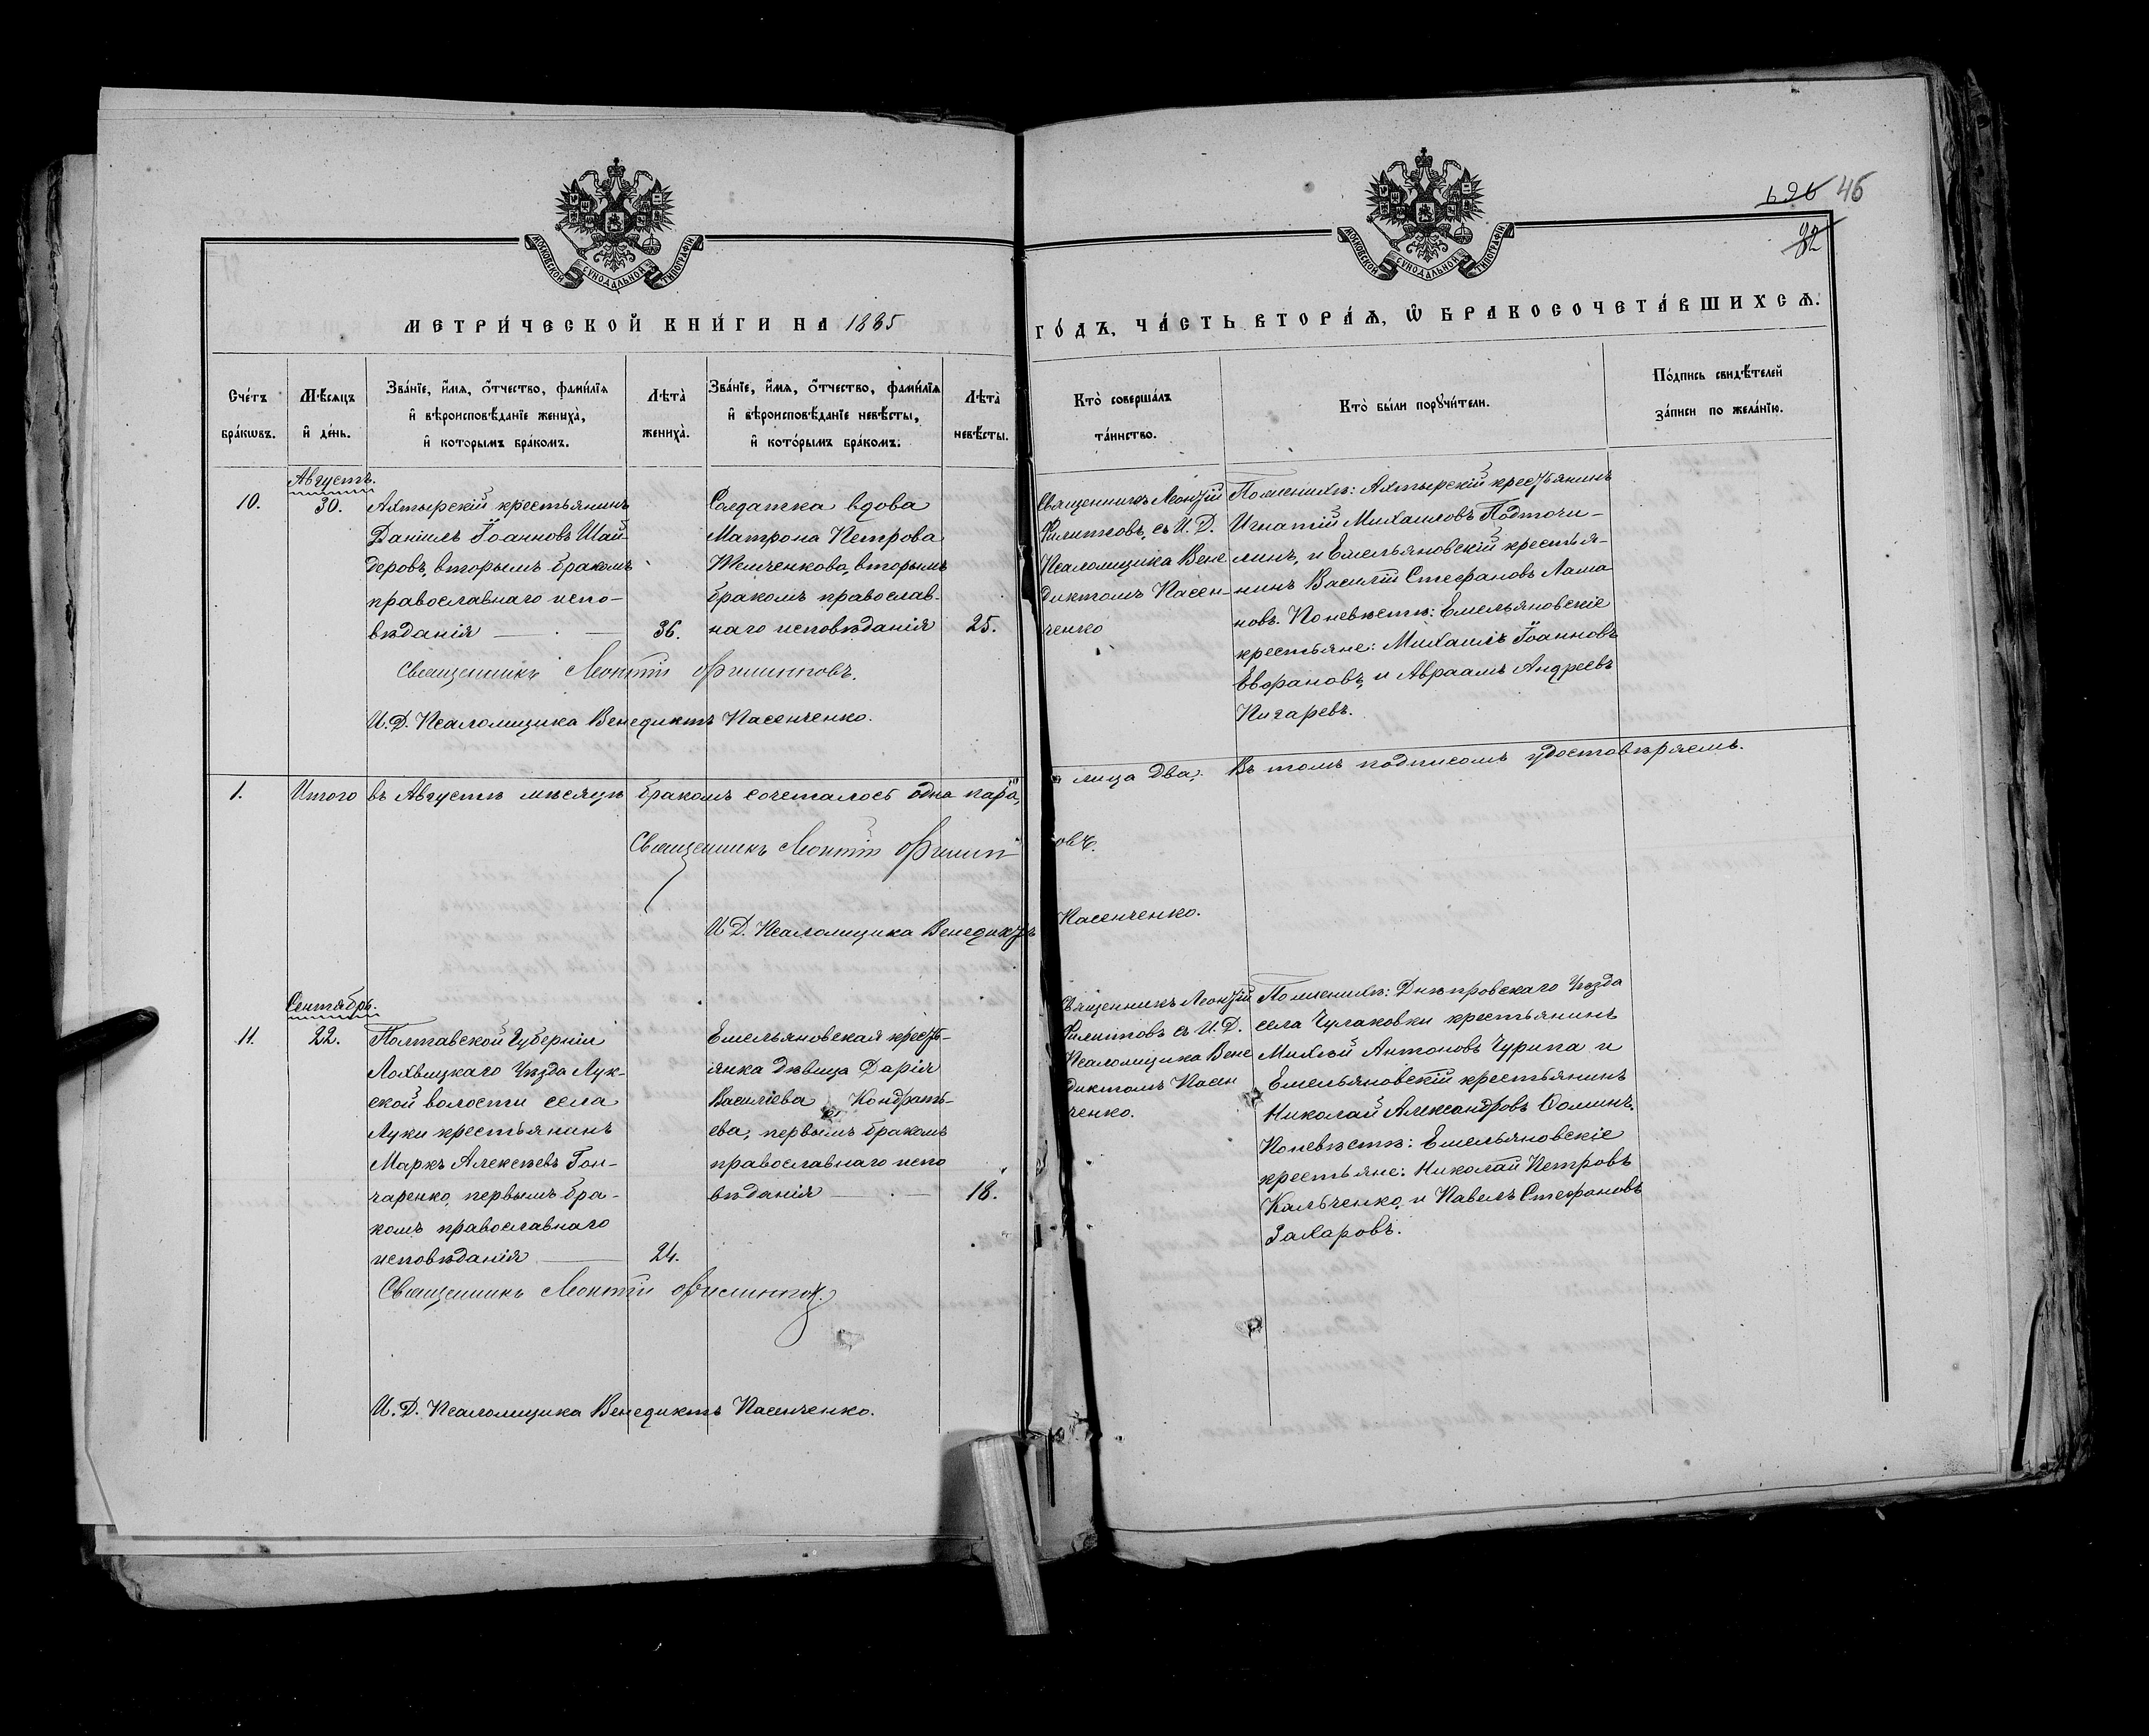 МОСКОВСКОЙ СУНОДАЛЬНОЙ ТИПОГРАФІИ
МОСКОВСКОЙ СУНОДАЛЬНОЙ ТИПОГРАФІИ
696 45
82
МЕТРИ́ЧЕСКОЙ КНИ́ГИ НА 1885
ГО́ДЪ, ЧА́СТЬ ВТОРА́Ѧ, Ѽ БРАКОСОЧЕТА́ВШИХСѦ.
Сче́тъ бра́кωвъ.
Мѣ́сяцъ и҆ де́нь.
Зва́нїе, и҆́мя, о҆́тчество, фами́лїя
и҆ вѣроисповѣ́данїе жениха̀,
и҆ которымъ бра́комъ.
Лѣта̀ жениха̀.
Зва́нїе, и҆́мя, о҆́тчество, фами́лїя
и҆ вѣроисповѣ́данїе невѣ́сты,
и҆ кото́рымъ бра́комъ.
Лѣта̀ невѣ́сты.
Кто̀ соверша́лъ
та́инство.
Кто̀ бы́ли порꙋчи́тели.
По́дпись свидѣ́телей
за́писи по жела́нїю.
Августъ.
10.
30.
Ахтырскій крестьянинъ
Даніилъ Іоанновъ Шай
деровъ, вторымъ бракомъ
православнаго испо-
вѣданія
36.
Солдатка вдова
Матрона Петрова
Жемченкова, вторымъ
бракомъ православ-
наго исповѣданія
25.
Священникъ Леонтій
Филиповъ, съ И. Д.
Псаломщика Вене
диктомъ Пасен-
ченко
По женихѣ: Ахтырскій крестьянинъ
Игнатій Михаиловъ Подточи-
линъ, и Емельяновскій крестья-
нинъ Василій Стефановъ Лама
новъ. По невѣстѣ: Емельяновскіе
крестьяне: Михаилъ Іоанновъ
Евфановъ, и Авраамъ Андреевъ
Пигаревъ.
Священникъ Леонтій Филипповъ.
И. Д. Псаломщика Венедиктъ Пасенченко.
1.
Итого въ Августѣ мѣсяцѣ бракомъ сочеталось одна пара,
а лица два. Въ томъ подписомъ удостовѣряемъ.
Священникъ Леонтій Филипповъ.
И. Д. Псаломщика Венедиктъ Пасенченко.
Сентябрь.
11.
22.
Полтавской Губерніи
Лохвицкаго Уѣзда Лук-
ской волости села
Луки крестьянинъ
Маркъ Алексѣевъ Гон-
чаренко, первымъ бра-
комъ православнаго
исповѣданія
24.
Емельяновская кресть-
янка дѣвица Дарія
Василіева Кондрать-
ева, первымъ бракомъ
православнаго испо
вѣданія
18.
Священникъ Леонтій
Филиповъ съ И. Д.
Псаломщика Вене
диктомъ Пасен
ченко.
По женихѣ: Днѣпровскаго Уѣзда
села Чулаковки крестьянинъ
Михей Антоновъ Чурипа и
Емельяновскій крестьянинъ
Николай Александровъ Ѳоминъ.
По невѣстѣ: Емельяновскіе
крестьяне: Николай Петровъ
Кальченко, и Павелъ Стефановъ
Захаровъ.
Священникъ Леонтій Филипповъ.
И. Д. Псаломщика Венедиктъ Пасенченко.